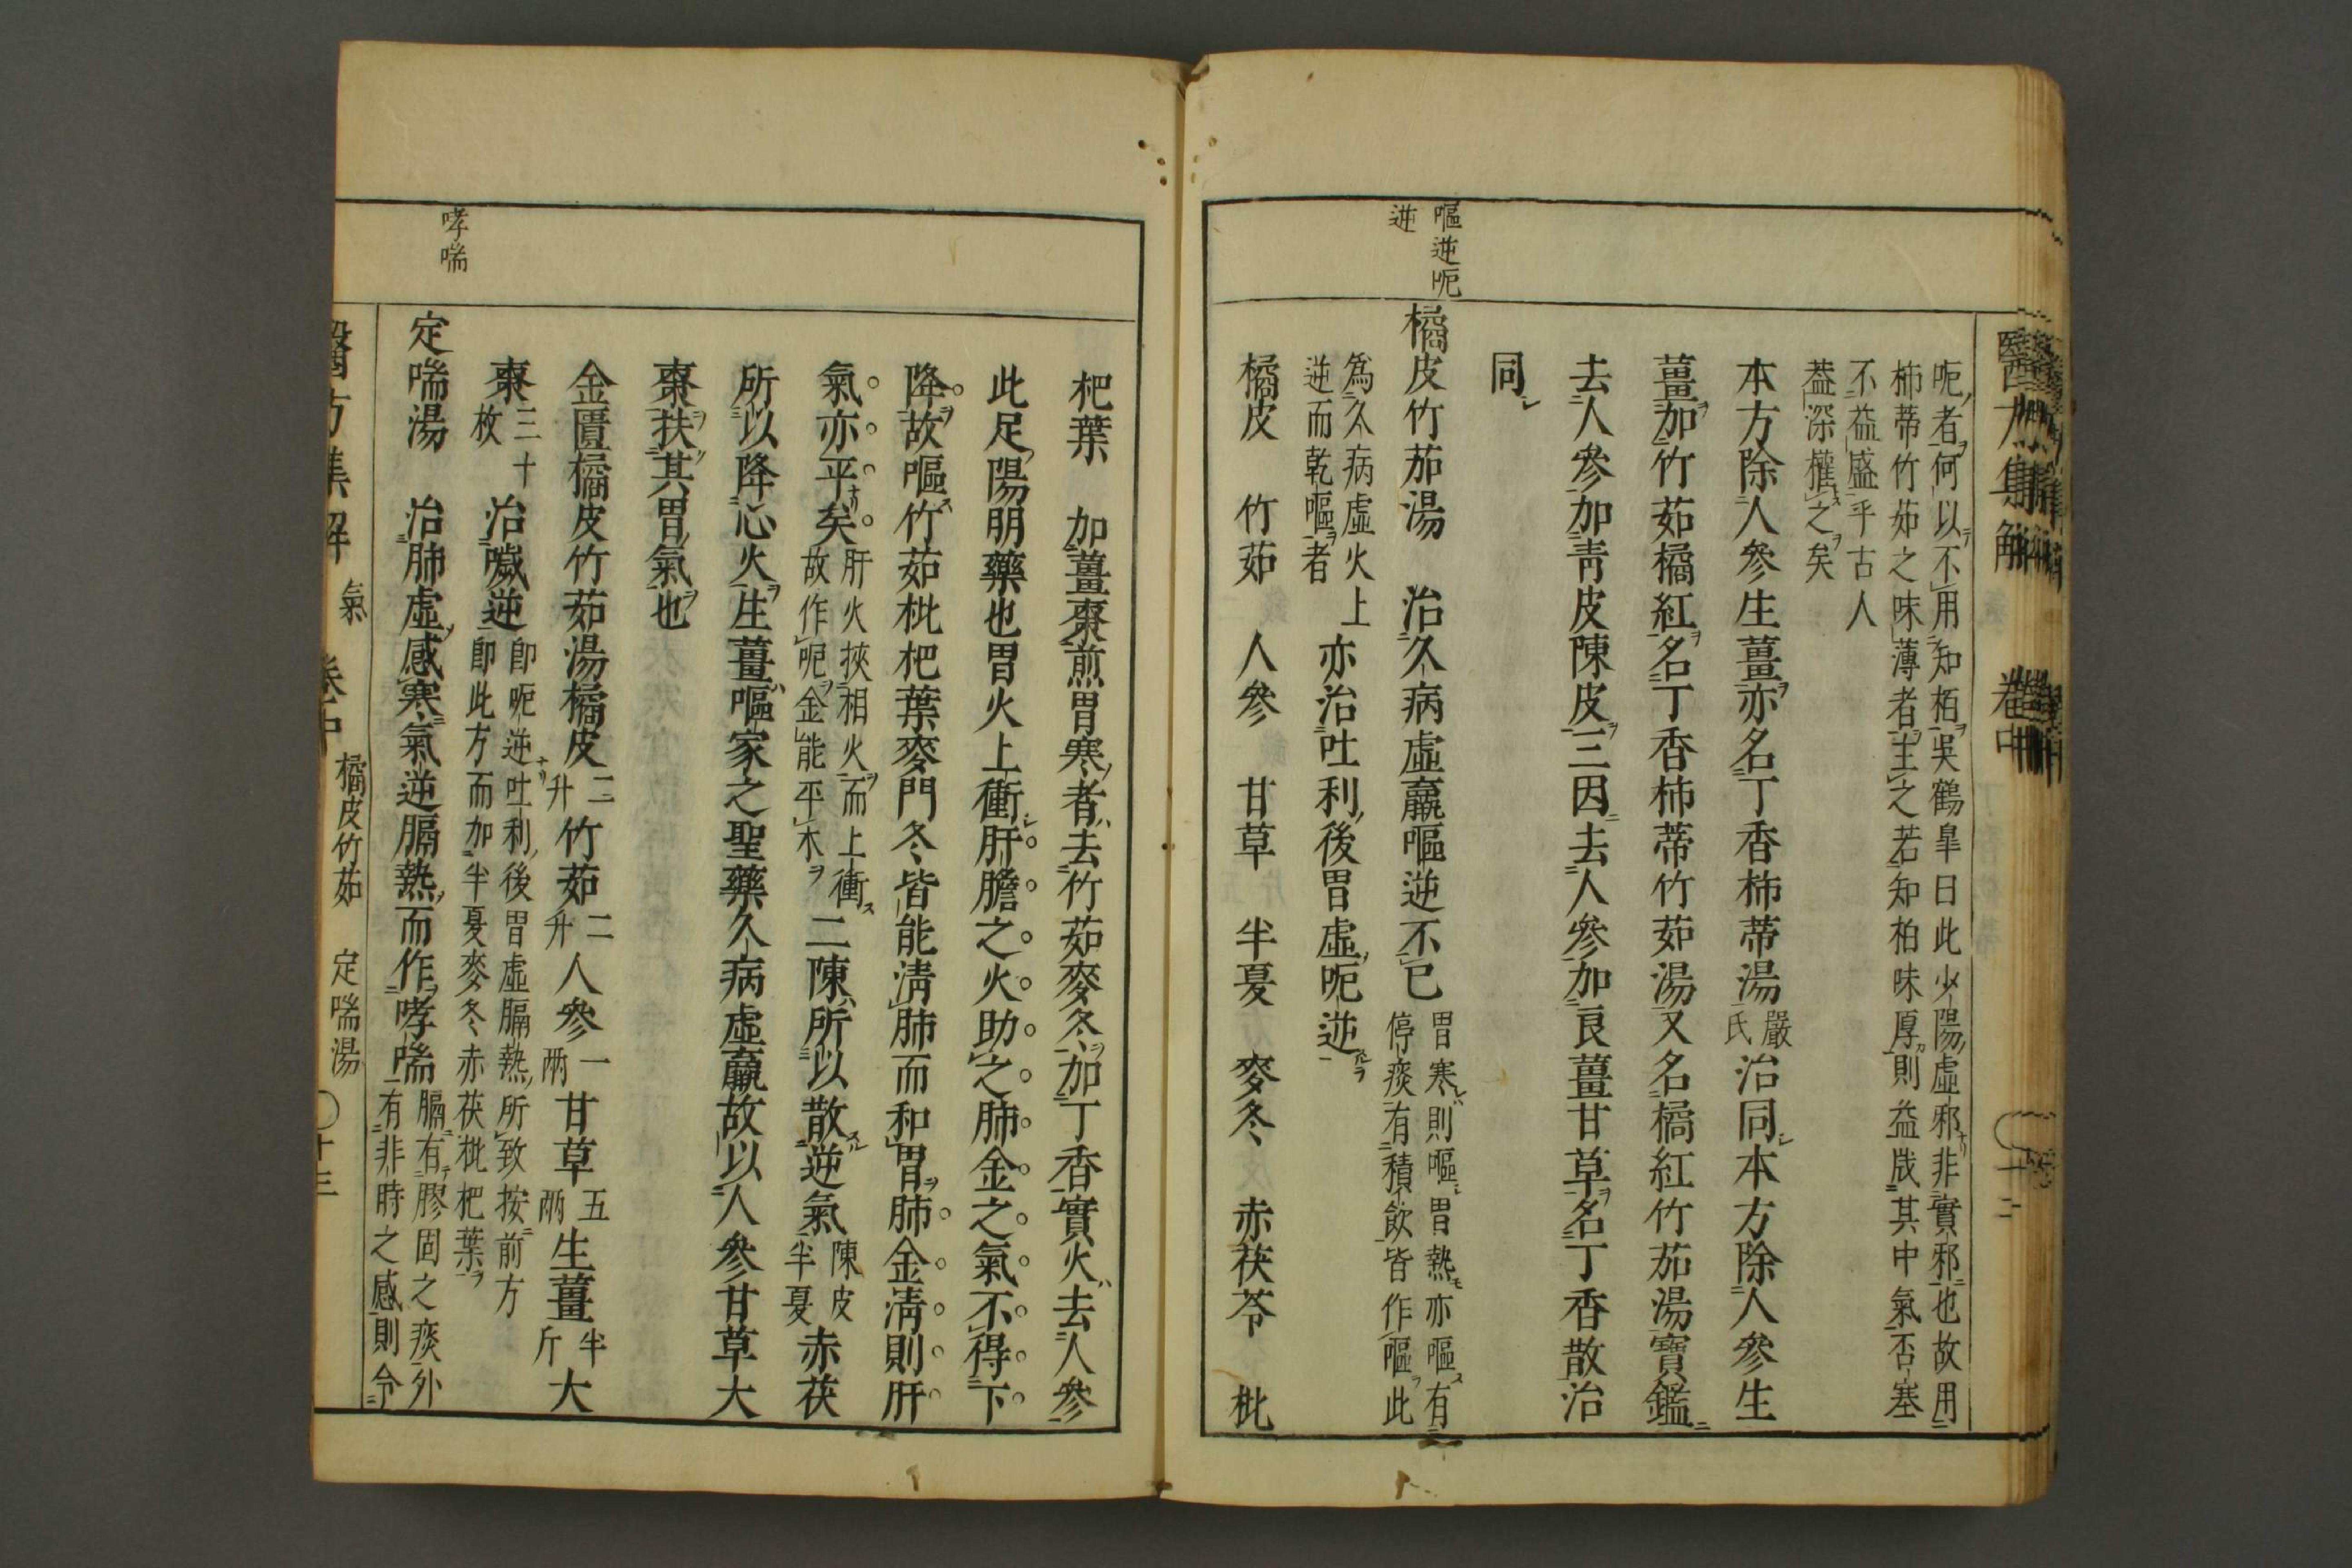 醫方集解 卷中 十二
呃者何以不用知栢吳鶴皐曰此少陽虛邪非實邪也故用
柿蒂竹茹之味薄者主之若知柏味厚則益戕其中氣否塞
不益盛乎古人
葢深權之矣
本方除人參生薑亦名丁香柿蒂湯嚴氏治同本方除人參生
薑加竹茹橘紅名丁香柿蒂竹茹湯又名橘紅竹茹湯寶鑑
去人參加靑皮陳皮三因去人參加良薑甘草名丁香散治
同
嘔逆呃
逆
橘皮竹茹湯 治久病虛羸嘔逆不已
胃寒則嘔胃熱亦嘔有
停痰有積飲皆作嘔此
爲久病虛火上
逆而乾嘔者
亦治吐利後胃虛呃逆
橘皮 竹茹 人參 甘草 半夏 麥冬 赤茯苓 枇
杷葉 加薑棗煎胃寒者去竹茹麥冬加丁香實火去人參
此足陽明藥也胃火上衝肝膽之火助之肺金之氣不得下
降故嘔竹茹枇杷葉麥門冬皆能淸肺而和胃肺金淸則肝
氣亦平矣肝火挾相火而上衝故作呃金能平木二陳所以散逆氣陳皮半夏赤茯
所以降心火生薑嘔家之聖藥久病虛羸故以人參甘草大
棗扶其胃氣也
金匱橘皮竹茹湯橘皮二升竹茹二升人參一兩甘草五兩生薑半斤大
棗三十枚治噦逆
即呃逆吐利後胃虛膈熱所致按前方
即此方而加半夏麥冬赤茯枇杷葉
哮喘
定喘湯 治肺虛感寒氣逆膈熱而作哮喘
膈有膠固之痰外
有非時之感則令
醫方集解 氣 卷中 橘皮竹茹 定喘湯 十三